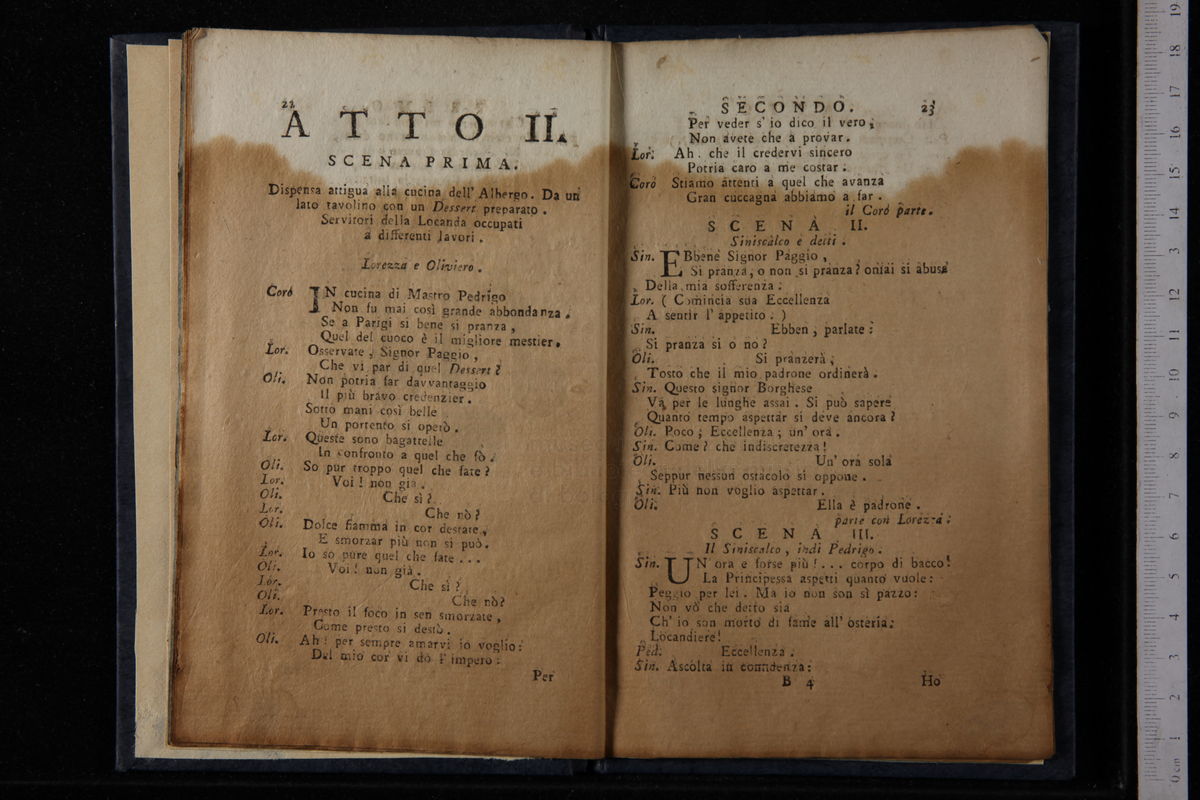 22
ATTO II.
SCENA PRIMA.
Dispensa attigua alla cucina dell' Albergo. Da un
lato tavolino con un Dessert preparato.
Servitori della Locanda occupati
a differenti lavori.
Lorezza e Oliviero.
Coro IN cucina di Mastro Pedrigo
Non fu mai così grande abbondanza.
Se a Parigi si bene si pranza,
Quel del cuoco è il migliore mestier.
Lor. Osservate, Signor Paggio,
Che vi par di quel Dessert?
Oli. Non potria far davvantaggio
Il più bravo credenzier.
Sotto mani così belle
Un portento si operò.
Lor. Queste sono bagattelle
In confronto a quel che fò.
Oli. So pur troppo quel che fate?
Lor. Voi! non già.
Oli. Che sì?
Lor. Che nò?
Oli. Dolce fiamma in cor destate,
E smorzar più non si può.
Lor. Io so pure quel che fate...
Oli. Voi! non già.
Lor. Che sì?
Oli. Che nò?
Lor. Presto il foco in sen smorzate,
Come presto si destò.
Oli. Ah! per sempre amarvi io voglio:
Del mio cor vi dò l' impero:
Per
SECONDO. 23
Per veder s' io dico il vero,
Non avete che a provar.
Lor. Ah. che il credervi sincero
Potria caro a me costar.
Coro Stiamo attenti a quel che avanza
Gran cuccagna abbiamo a far.
il Coro parte.
SCENA II.
Siniscalco e detti.
Sin. EBbene Signor Paggio,
Si pranza, o non si pranza? omai si abusa
Della mia sofferenza:
Lor. (Comincia sua Eccellenza
A sentir l' appetito.)
Sin. Ebben, parlate:
Si pranza si o no?
Oli. Si pranzerà;
Tosto che il mio padrone ordinerà.
Sin. Questo signor Borghese
Va per le lunghe assai. Si può sapere
Quanto tempo aspettar si deve ancora?
Oli. Poco; Eccellenza; un' ora.
Sin. Come? che indiscretezza!
Oli. Un' ora sola
Seppur nessun ostacolo si oppone.
Sin. Più non voglio aspettar.
Oli. Ella è padrone.
parte con Lorezza:
SCENA III.
Il Siniscalco, indi Pedrigo.
Sin. UN' ora e forse più!... corpo di bacco!
La Principessa aspetti quanto vuole:
Peggio per lei. Ma io non son sì pazzo:
Non vò che detto sia
Ch' io son morto di fame all' osteria:
Locandiere!
Ped. Eccellenza.
Sin. Ascolta in confidenza:
B 4 Ho
0 cm 1 2 3 4 5 6 7 8 9 10 11 12 13 14 15 16 17 18 19